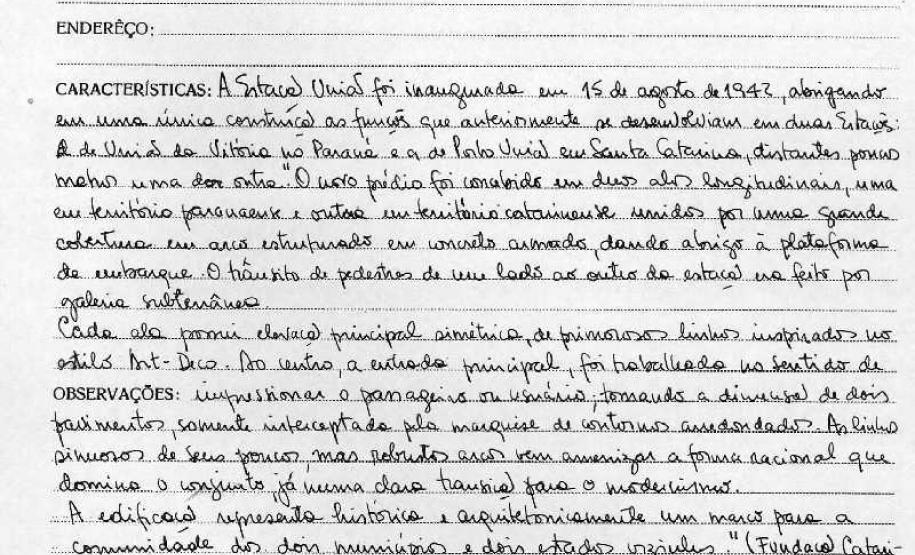 ENDERÊÇO:
CARACTERÍSTICAS: A Estação União foi inaugurada em 15 de agosto de 1942, abrigando
em uma única construção as funções que anteriormente se desenvolviam em duas Estações:
A de União da Vitória no Paraná e a de Porto União em Santa Catarina, distantes poucos
metros uma da outra. "O novo prédio foi concebido em duas alas longitudinais, uma
em território paranaense e outra em território catarinense unidos por uma grande
cobertura em arco estruturado em concreto armado, dando abrigo à plataforma
de embarque. O trânsito de pedestres de um lado ao outro da estação era feito por
galeria subterrânea.
Cada ala possui elevação principal simétrica, de primorosas linhas inspirados no
estilo Art-Deco. Ao centro, a entrada principal, foi trabalhada no sentido de
OBSERVAÇÕES: impressionar o passageiro ou usuário, tomando a dimensão de dois
pavimentos, somente interceptada pela marquise de contornos arredondados. As linhas
sinuosas de seus poucos, mas robustos arcos vem amenizar a forma racional que
domina o conjunto, já numa clara transição para o modernismo.
A edificação representa histórica e arquitetonicamente um marco para a
comunidade dos dois municípios e dois estados vizinhos" (Fundação Catari-